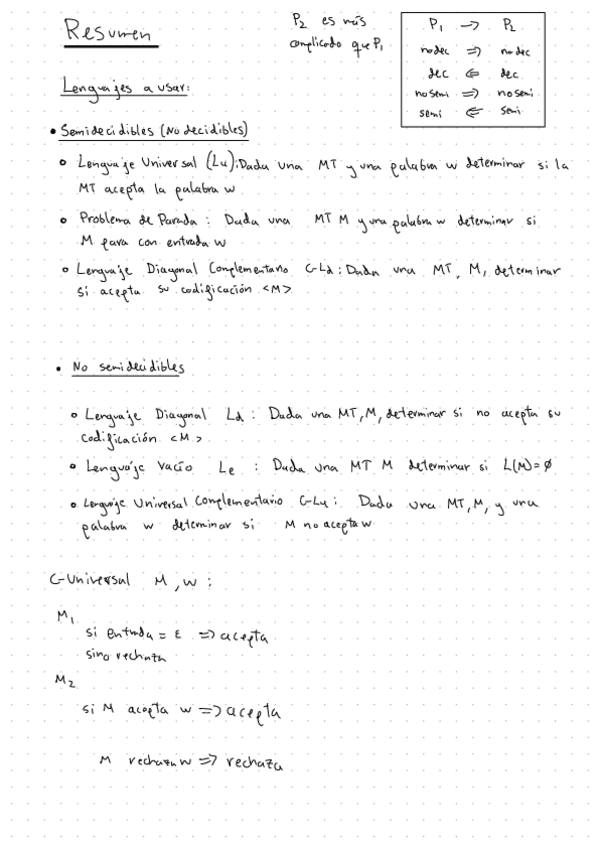 Resumen
P2 es más
complicado que P1
P1 → P2
no dec ⇒ no dec
dec ⇐ dec
no semi ⇒ no semi
semi ⇐ semi
Lenguajes a usar:
• Semidecidibles (No decidibles)
o Lenguaje Universal (Lu): Dada una MT y una palabra w determinar si la
MT acepta la palabra w
o Problema de Parada : Dada una MT M y una palabra w determinar si
M para con entrada w
o Lenguaje Diagonal Complementario C-Ld : Dada una MT, M, determinar
si acepta su codificación <M>
• No semidecidibles
o Lenguaje Diagonal Ld : Dada una MT, M, determinar si no acepta su
codificación <M>
o Lenguaje Vacío Le : Dada una MT M determinar si L(M)=∅
o Lenguaje Universal Complementario C-Lu : Dada una MT, M, y una
palabra w determinar si M no acepta w
C-Universal M, w :
M1
si entrada = ε ⇒ acepta
sino rechaza
M2
si M acepta w ⇒ acepta
M rechaza w ⇒ rechaza